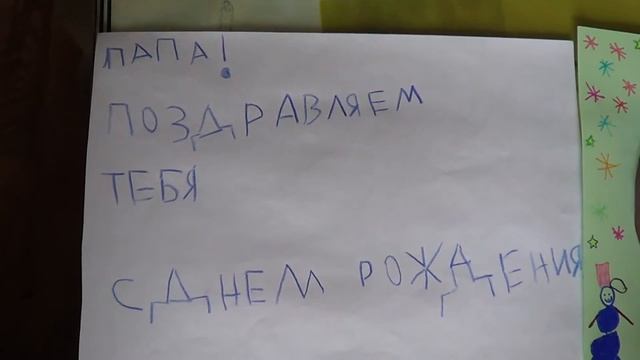 ПАПА!
ПОЗДРАВЛЯЕМ
ТЕБЯ
С ДНЕМ РОЖДЕНИЯ